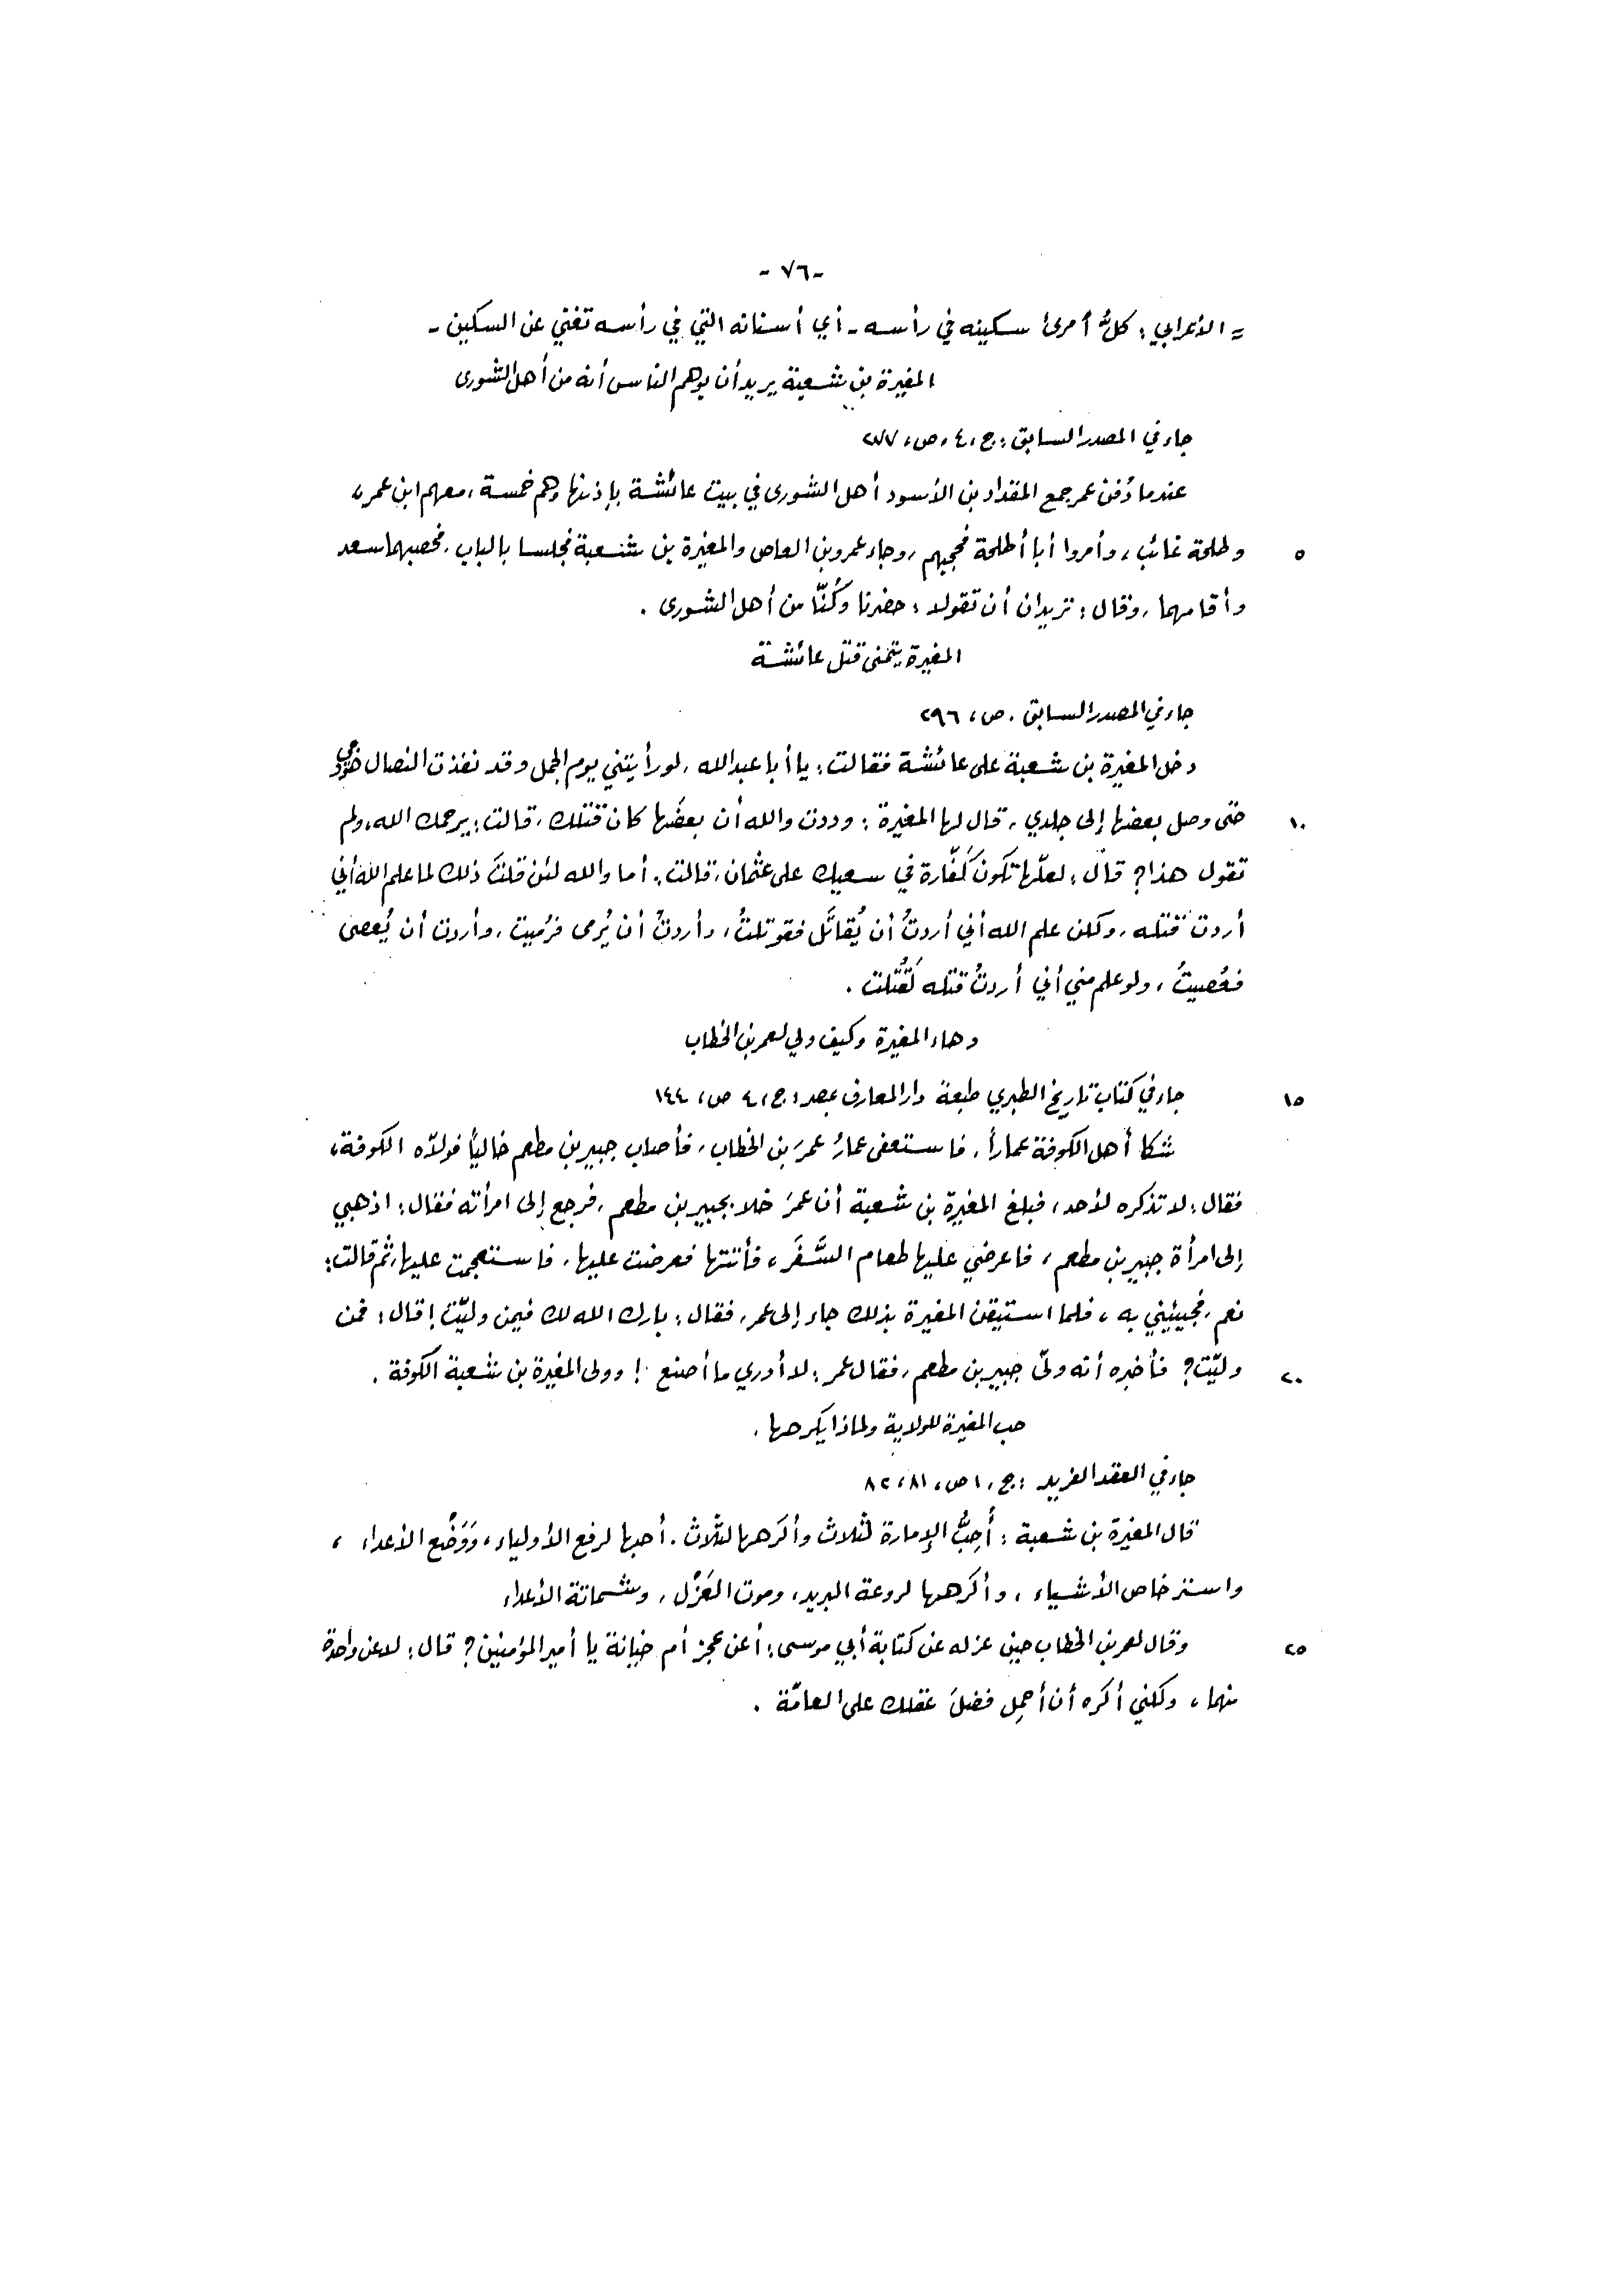 -٧٦-
= الأعرابي: كلُّ أمرئ سكينه في رأسه - أي أسنانه التي في رأسه تغني عن السكين -
المغيرة بن شعبة يريد أن يوهم الناس أنه من أهل الشورى
جاء في المصدر السابق: ج، ٤، ص، ٢٧٧
عندما دُفن عمر جمع المقداد بن الأسود أهل الشورى في بيت عائشة بإذنها وهم خمسة، معهم ابن عمر،
٥ وطلحة غائب، وأمروا أبا طلحة فحجبهم، وجاء عمرو بن العاص والمغيرة بن شعبة فجلسا بالباب، فحصبهما سعد
وأقامهما، وقال: تريدان أن تقولا: حضرنا وكُنّا من أهل الشورى.
المغيرة يتمنى قتل عائشة
جاء في المصدر السابق، ص، ٢٩٦
دخل المغيرة بن شعبة على عائشة فقالت: يا أبا عبد الله، لو رأيتني يوم الجمل وقد نفذت النصال هودجي
١٠ حتى وصل بعضها إلى جلدي، قال لها المغيرة: وددت والله أن بعضَها كان قتلك، قالت: يرحمك الله، ولم
تقول هذا؟ قال: لعلّها تكون كَفّارة في سعيك على عثمان، قالت: أما والله لئن قلتَ ذلك لما علم الله أني
أردت قتله، ولكن علم الله أني أردتُ أن يُقاتَل فقوتلتُ، وأردتُ أن يُرمى فرُميت، وأردت أن يُعصى
فعُصيتُ، ولو علم مني أني أردتُ قتله لَقُتلت.
دهاء المغيرة وكيف ولي لعمر بن الخطاب
١٥ جاء في كتاب تاريخ الطبري طبعة دار المعارف بمصر: ج، ٤ ص، ١٤٤
شكا أهل الكوفة عماراً، فاستعفى عمارُ عمرَ بن الخطاب، فأصاب جبير بن مطعم خالياً فولاّه الكوفة،
فقال: لا تذكره لأحد، فبلغ المغيرة بن شعبة أن عمرَ خلا بجبير بن مطعم، فرجع إلى امرأته فقال: اذهبي
إلى امرأة جبير بن مطعم، فاعرضي عليها طعام السَّفَر، فأتتها فعرضت عليها، فاستعجمت عليها، ثم قالت:
نعم، فجيئيني به، فلما استيقن المغيرة بذلك جاء إلى عمر، فقال: بارك الله لك فيمن ولّيت! قال: فمن
٢٠ ولّيت؟ فأخبره أنه ولّى جبير بن مطعم، فقال عمر: لا أدري ما أصنع! وولى المغيرة بن شعبة الكوفة.
حب المغيرة للولاية ولماذا يكرهها.
جاء في العقد الفريد: ج، ١ ص، ٨١، ٨٢
قال المغيرة بن شعبة: أُحِبُّ الإمارة لثلاث وأكرهها لثلاث. أحبها لرفع الأولياء، وَوَضْع الأعداء،
واسترخاص الأشياء، وأكرهها لروعة البريد، وموت العَزْل، وشماتة الأعداء
٢٥ وقال لعمر بن الخطاب حين عزله عن كتابة أبي موسى: أعن عجز أم خيانة يا أمير المؤمنين؟ قال: لا عن واحدة
منهما، ولكني أكره أن أحمِل فضلَ عقلك على العامّة.